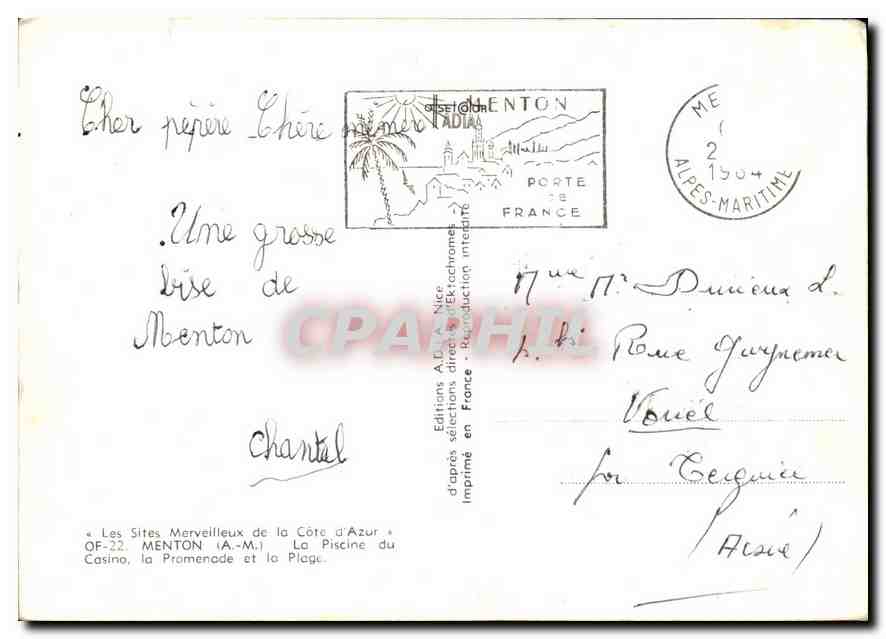 Cher pépère Chère mémère
Une grosse
bise de
Menton
Chantal
MENTON
PORTE
DE
FRANCE
ADIA
ME
2
1964
ALPES-MARITIME
Editions A.D.I.A. Nice
d'après sélections directes d'Ektachromes -
Imprimé en France - Reproduction interdite
Mme Mr Durieux L.
bis Rue Guynemer
Vouël
par Tergnier
(Aisne)
« Les Sites Merveilleux de la Côte d'Azur »
OF-22. MENTON (A.-M.) La Piscine du
Casino, la Promenade et la Plage.
CPAPHIL